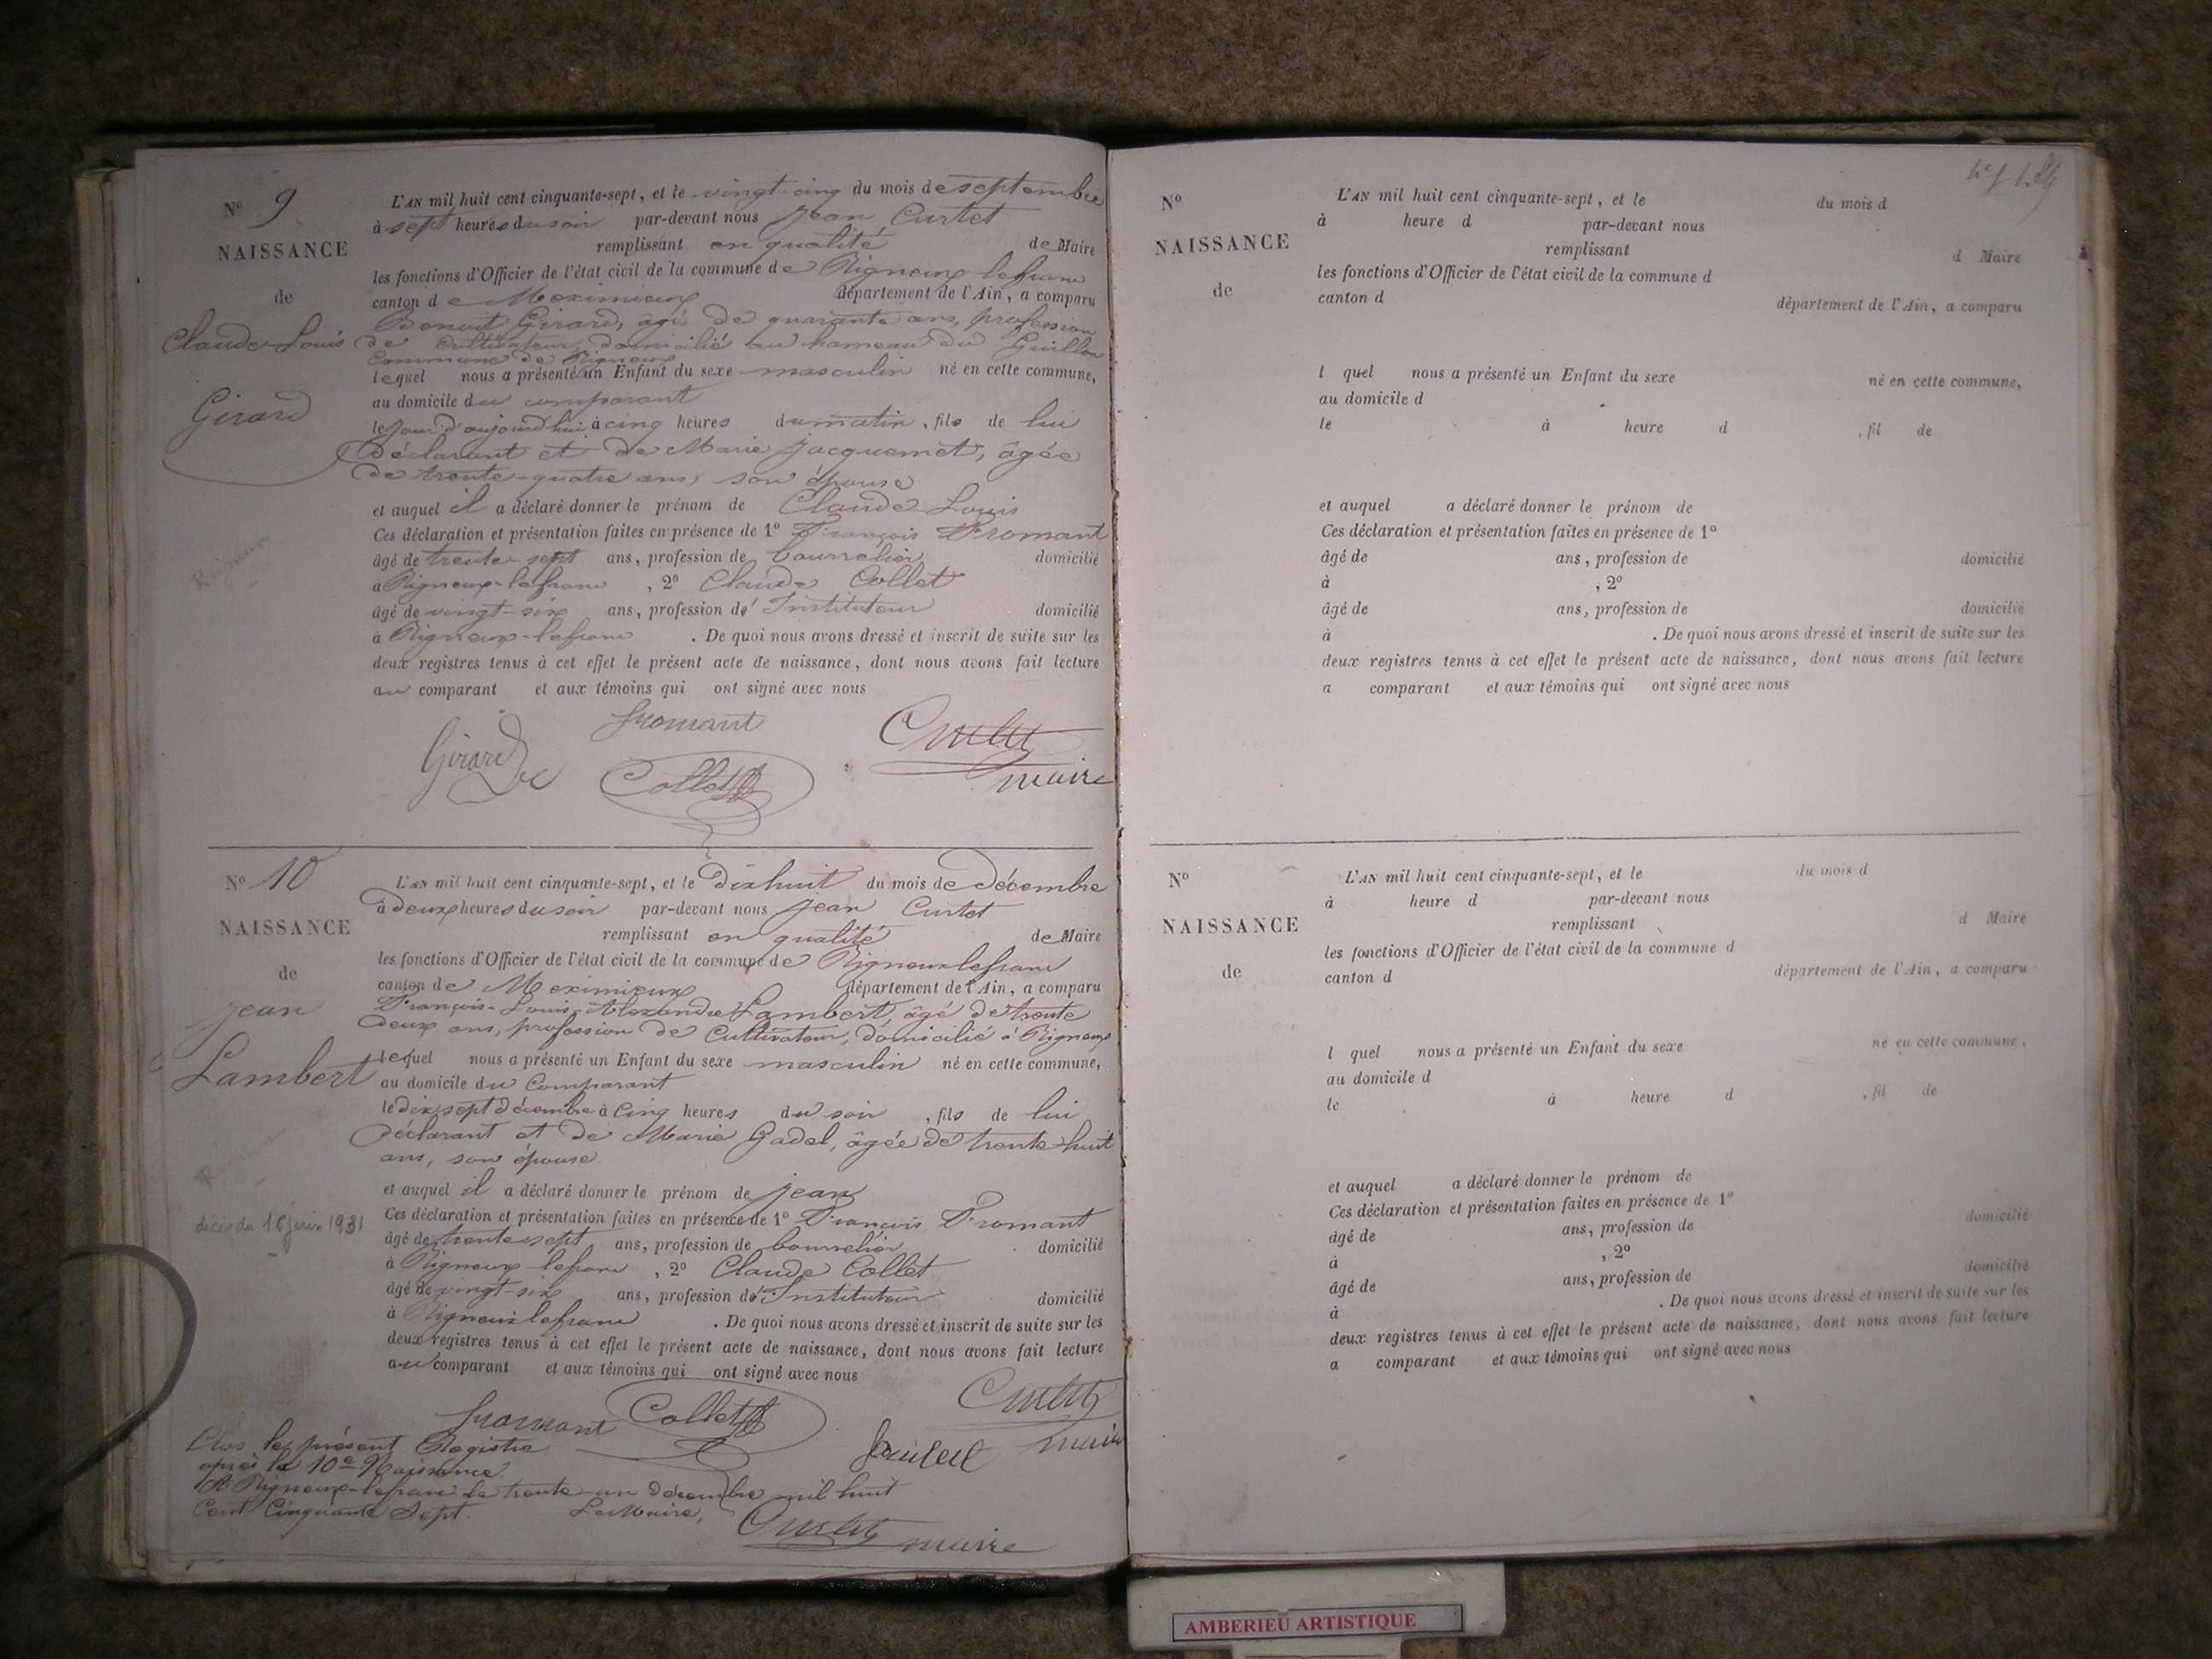 N° 9
NAISSANCE
de
Claude-Louis
Girard
L'AN mil huit cent cinquante-sept, et le vingt-cinq du mois de septembre
à sept heures du soir par-devant nous Jean Curtet
remplissant en qualité de Maire
les fonctions d'Officier de l'état civil de la commune de Rigneux-lefranc
canton de Meximieux département de l'Ain, a comparu
Benoit Girard, âgé de quarante ans, profession
de cultivateur, domicilié au hameau du Guillon
commune de Rigneux
lequel nous a présenté un Enfant du sexe masculin né en cette commune,
au domicile du comparant
le jour d'aujourd'hui à cinq heures du matin, fils de lui
déclarant et de Marie Jacquemet, âgée
de trente-quatre ans, son épouse
et auquel il a déclaré donner le prénom de Claude-Louis
Ces déclaration et présentation faites en présence de 1° François Fromant
âgé de trente-sept ans, profession de bourrelier domicilié
à Rigneux-lefranc, 2° Claude Collet
âgé de vingt-six ans, profession d'Instituteur domicilié
à Rigneux-lefranc. De quoi nous avons dressé et inscrit de suite sur les
deux registres tenus à cet effet le présent acte de naissance, dont nous avons fait lecture
au comparant et aux témoins qui ont signé avec nous
Fromant
Girard
Collet
Curtet
maire
N° 10
NAISSANCE
de
Jean
Lambert
décédé 16 juin 1931
L'AN mil huit cent cinquante-sept, et le Dix huit du mois de décembre
à deux heures du soir par-devant nous Jean Curtet
remplissant en qualité de Maire
les fonctions d'Officier de l'état civil de la commune de Rigneux lefranc
canton de Meximieux département de l'Ain, a comparu
François-Louis-Alexandre Lambert, âgé de trente
deux ans, profession de Cultivateur, domicilié à Rigneux
lequel nous a présenté un Enfant du sexe masculin né en cette commune,
au domicile du Comparant
le dix sept décembre à Cinq heures du soir, fils de lui
déclarant et de Marie Gadel, âgée de trente-huit
ans, son épouse
et auquel il a déclaré donner le prénom de Jean
Ces déclaration et présentation faites en présence de 1° François Fromant
âgé de trente sept ans, profession de bourrelier domicilié
à Rigneux-lefranc, 2° Claude Collet
âgé de vingt-six ans, profession d'Instituteur domicilié
à Rigneux lefranc. De quoi nous avons dressé et inscrit de suite sur les
deux registres tenus à cet effet le présent acte de naissance, dont nous avons fait lecture
au comparant et aux témoins qui ont signé avec nous
Fromant
Collet
Curtet
maire
Clos le présent Registre
après la 10e Naissance
A Rigneux-lefranc le trente-un décembre mil huit
Cent Cinquante Sept. Le Maire,
Curtet maire
N°
NAISSANCE
de
L'AN mil huit cent cinquante-sept, et le du mois d
à heure d par-devant nous
remplissant d Maire
les fonctions d'Officier de l'état civil de la commune d
canton d département de l'Ain, a comparu
l quel nous a présenté un Enfant du sexe né en cette commune,
au domicile d
le à heure d , fil de
et auquel a déclaré donner le prénom de
Ces déclaration et présentation faites en présence de 1°
âgé de ans, profession de domicilié
à , 2°
âgé de ans, profession de domicilié
à . De quoi nous avons dressé et inscrit de suite sur les
deux registres tenus à cet effet le présent acte de naissance, dont nous avons fait lecture
a comparant et aux témoins qui ont signé avec nous
N°
NAISSANCE
de
L'AN mil huit cent cinquante-sept, et le du mois d
à heure d par-devant nous
remplissant d Maire
les fonctions d'Officier de l'état civil de la commune d
canton d département de l'Ain, a comparu
l quel nous a présenté un Enfant du sexe né en cette commune,
au domicile d
le à heure d , fil de
et auquel a déclaré donner le prénom de
Ces déclaration et présentation faites en présence de 1°
âgé de ans, profession de domicilié
à , 2°
âgé de ans, profession de domicilié
à . De quoi nous avons dressé et inscrit de suite sur les
deux registres tenus à cet effet le présent acte de naissance, dont nous avons fait lecture
a comparant et aux témoins qui ont signé avec nous
AMBERIEU ARTISTIQUE